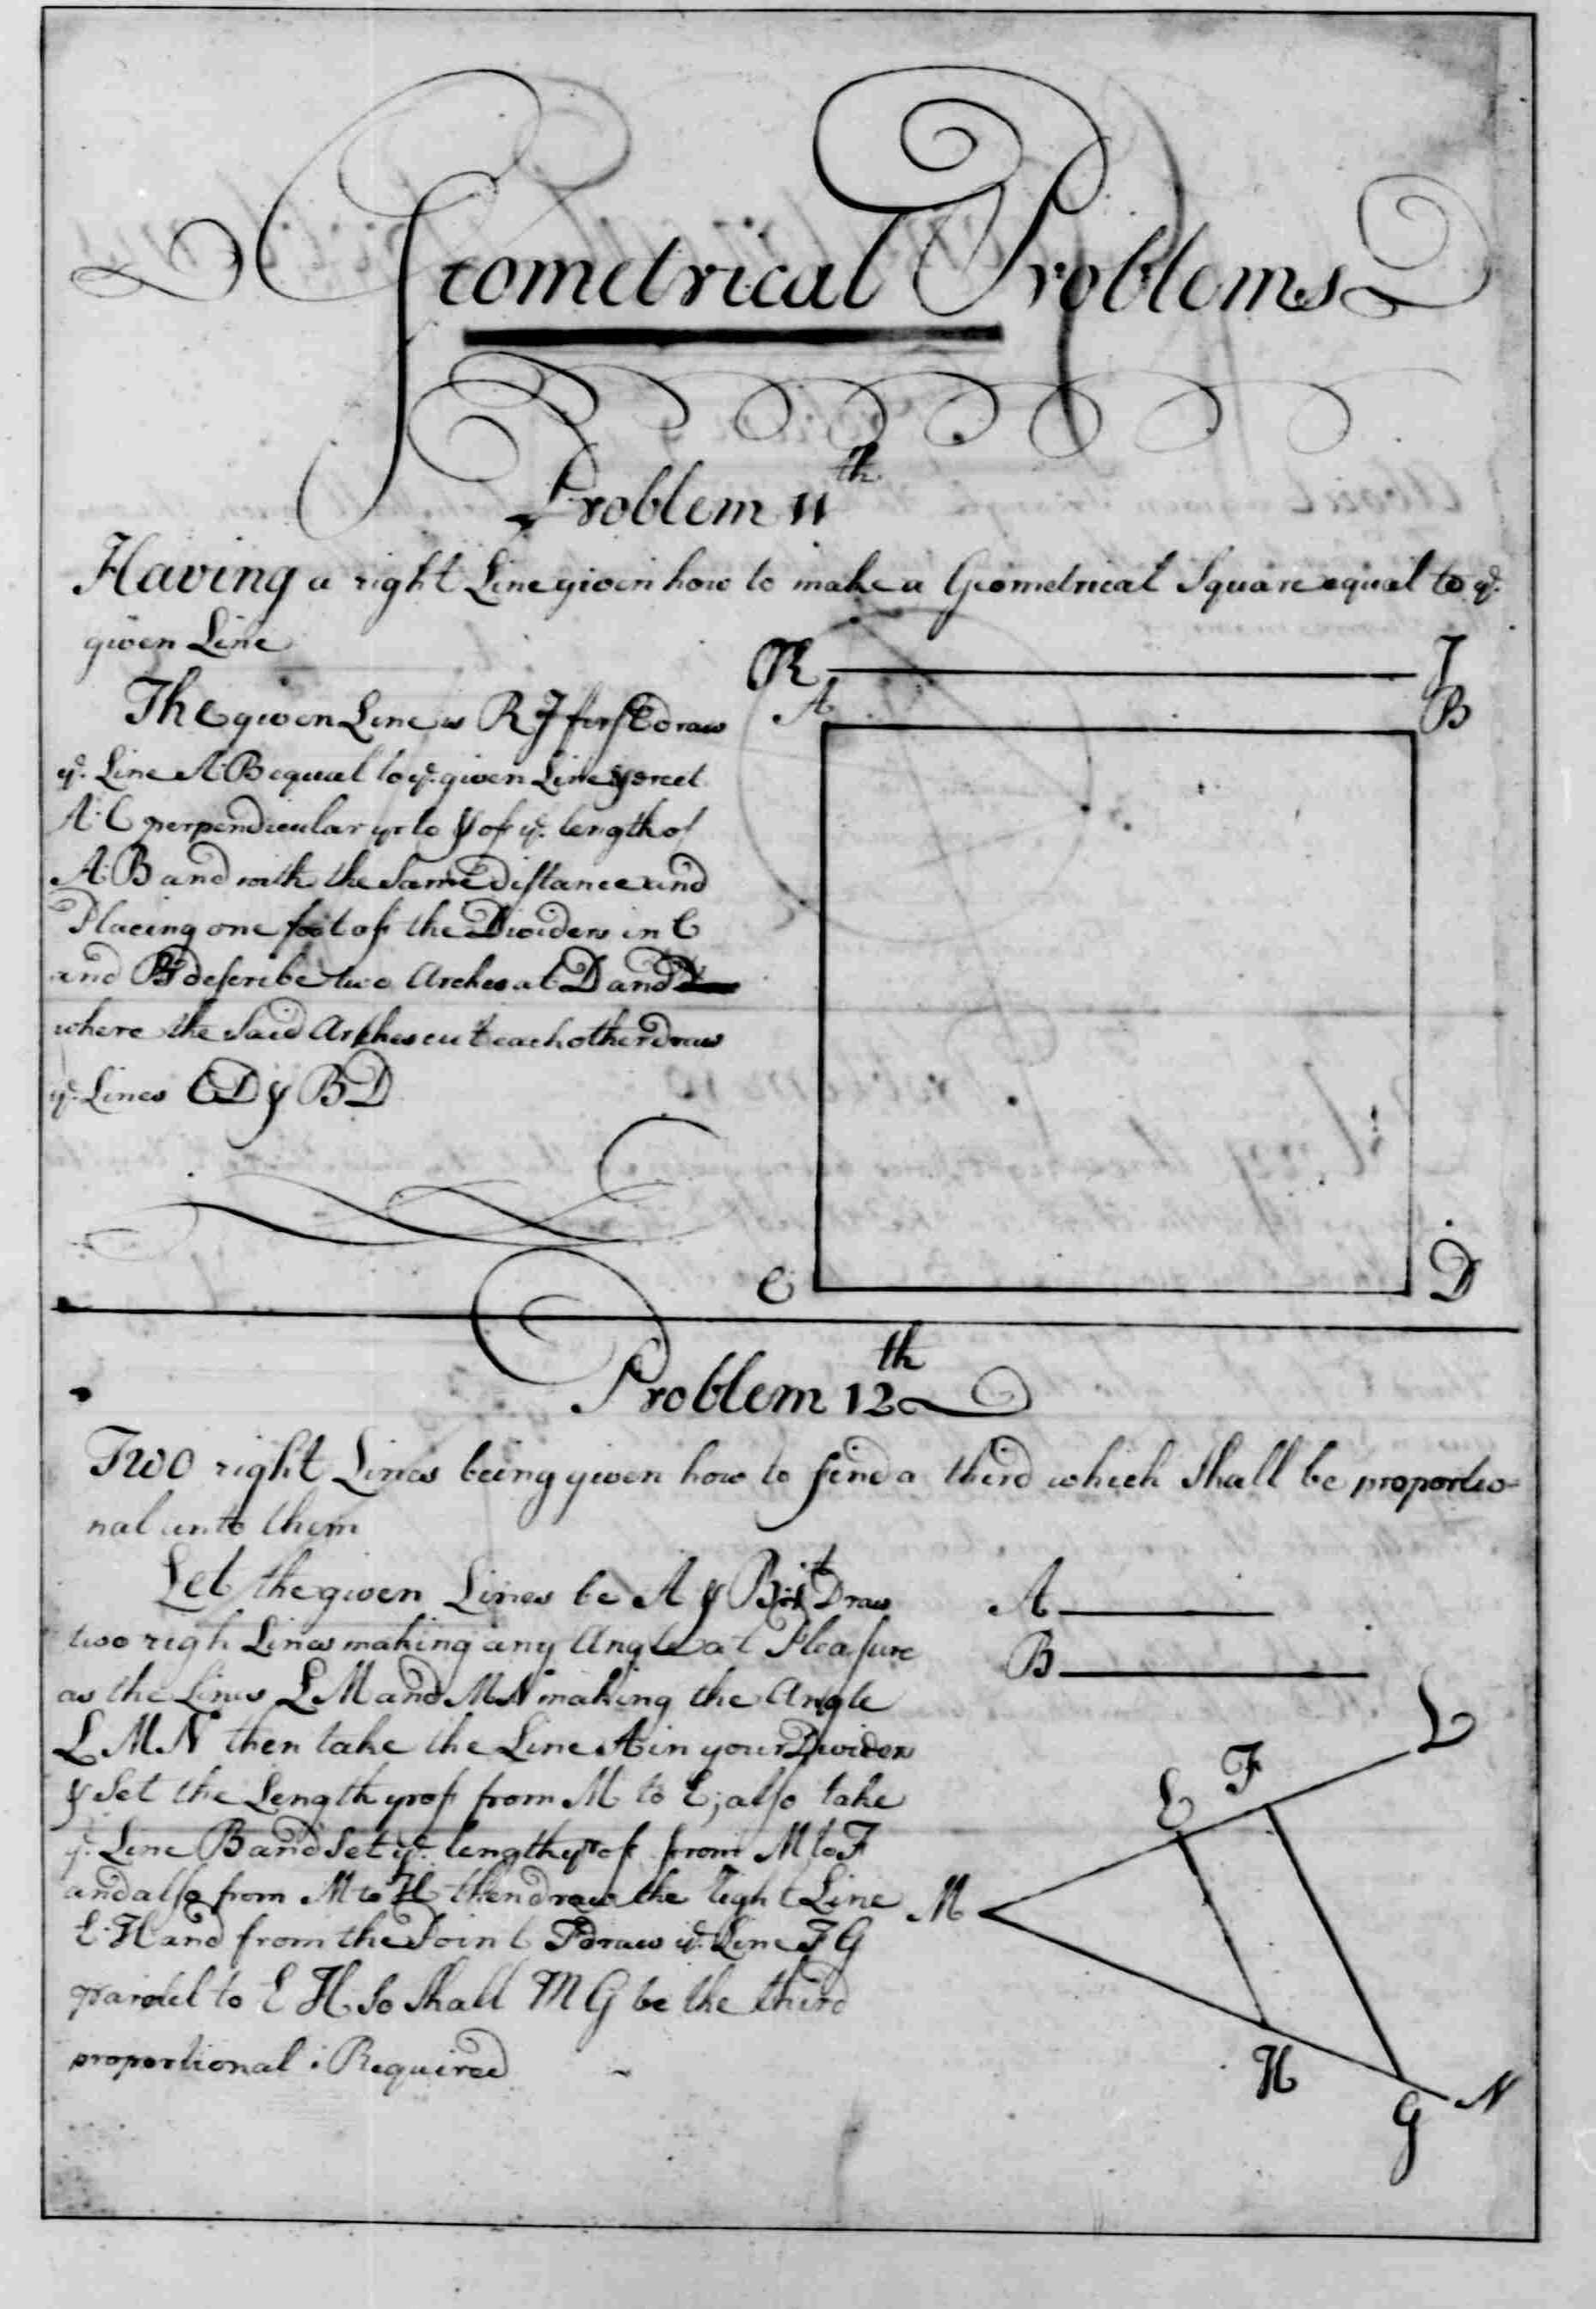 Geometrical Problems
Problem 11th
Having a right Line given how to make a Geometrical Square equal to ye.
given Line
R I
A B
The given Line is R I first draw
ye. Line A:B equal to ye. given Line & erect
A:C perpendicular yrto & of ye. length of
A:B and with the Same distance and
Placing one foot of the Dividers in C
and B describe two Arches at D and
where the Said Arches cut each other draw
ye. Lines CD & BD
C D
Problem 12th
Two right Lines being given how to find a third which Shall be proportio-
nal unto them
Let the given Lines be A & B 1st Draw
two righ Lines making any Angle at Pleasure
as the Lines LM and MN making the Angle
LMN then take the Line A in your Dividers
& Set the Length yrof from M to E; also take
ye. Line B and Set ye. length yrof from M to F
and also from M to H then draw the right Line
E:H and from the Point F draw ye. Line FG
pararlel to E H So Shall MG be the third
proportional : Required
A
B
L
E F
M
H
G N